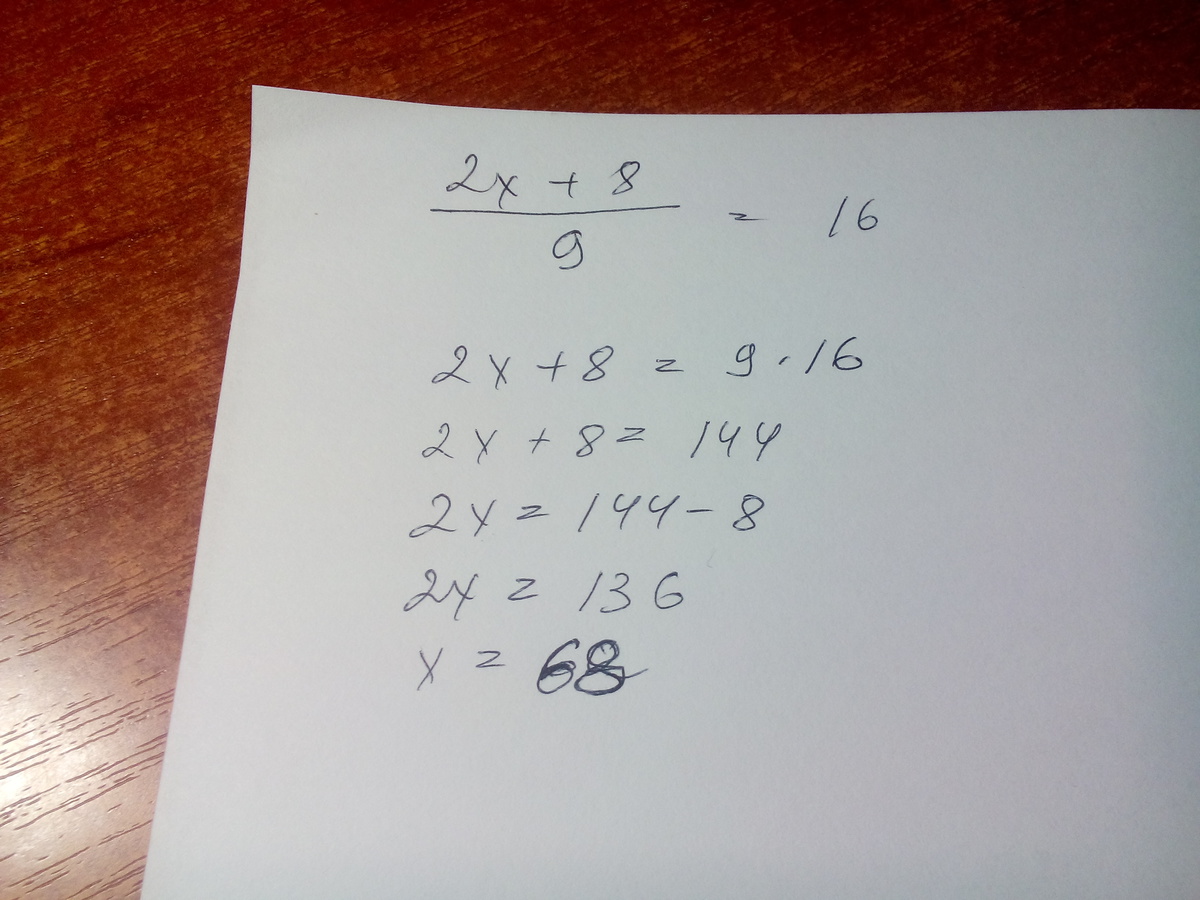 2x + 8
9
= 16
2x + 8 = 9 · 16
2x + 8 = 144
2x = 144 - 8
2x = 136
x = 68